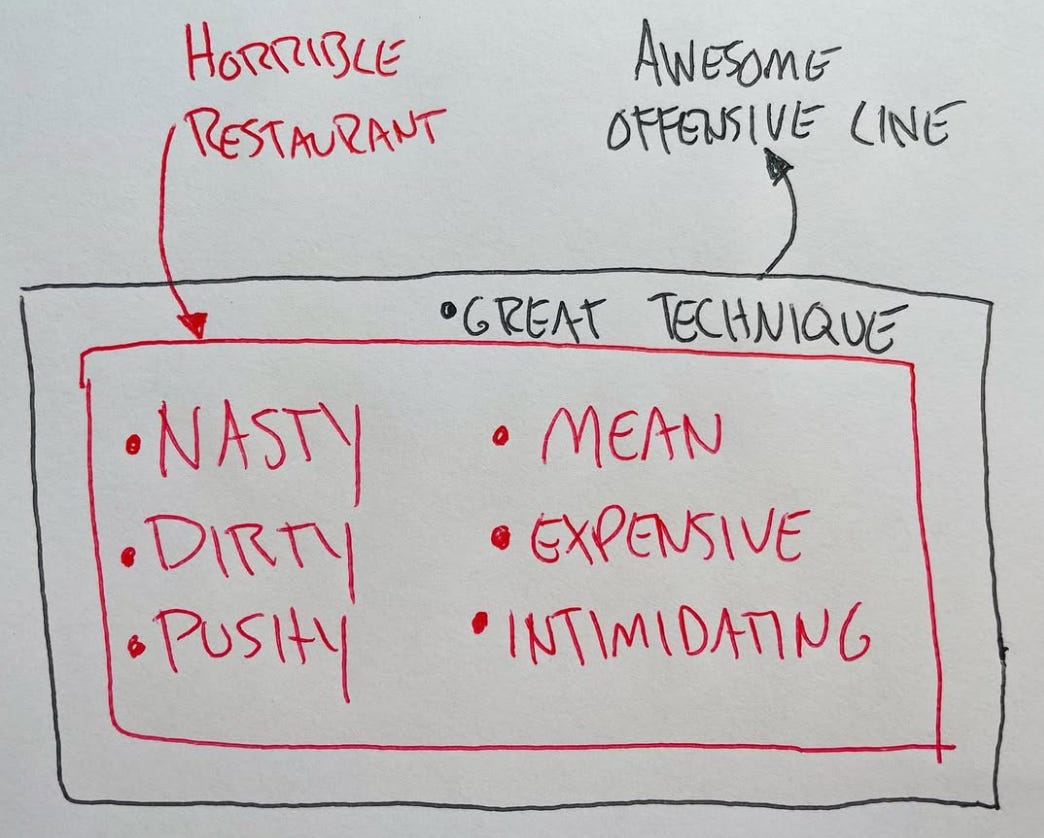 HORRIBLE
RESTAURANT
AWESOME
OFFENSIVE LINE
• GREAT TECHNIQUE
• NASTY
• DIRTY
• PUSHY
• MEAN
• EXPENSIVE
• INTIMIDATING